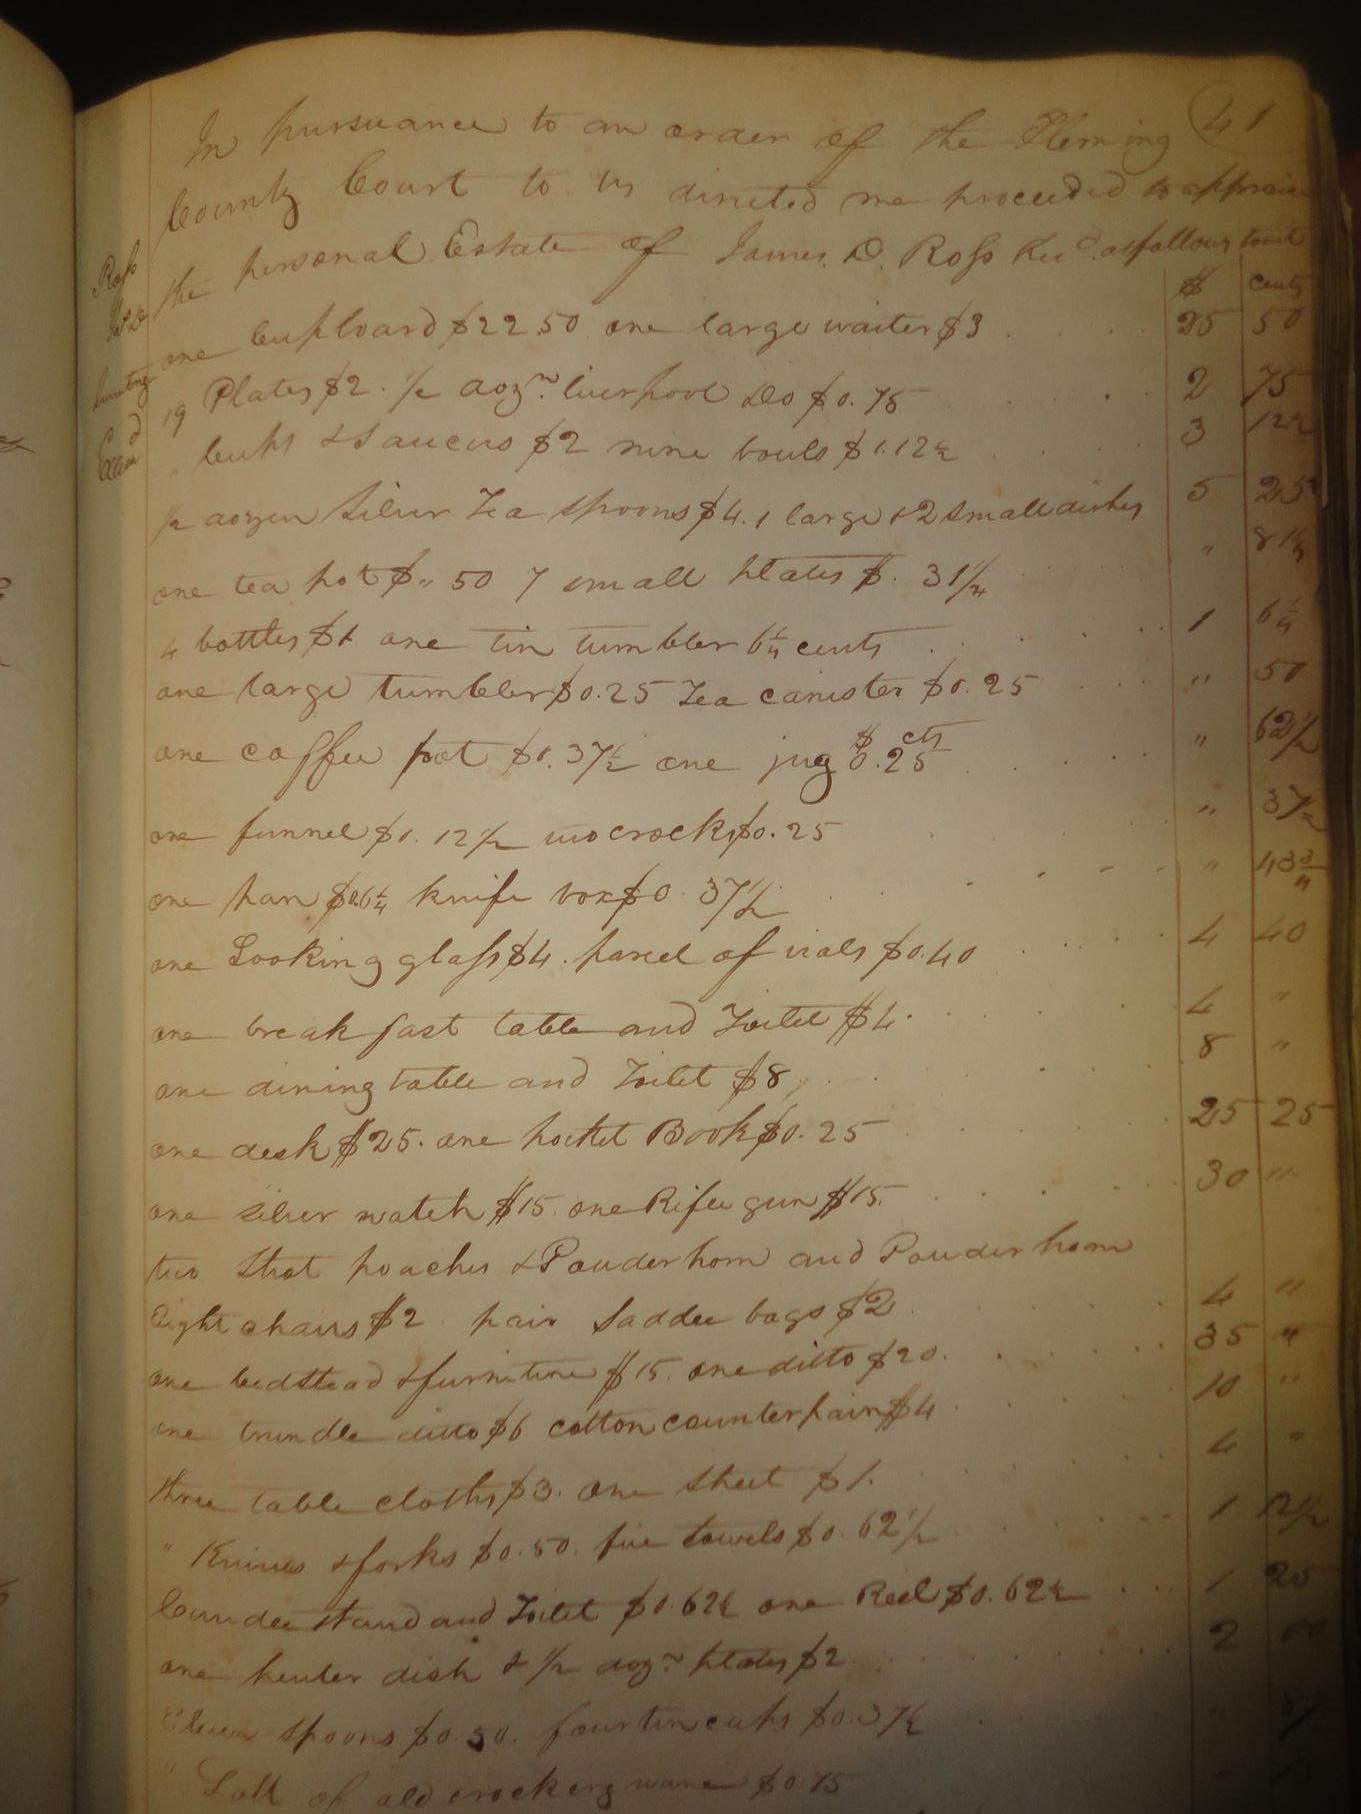 41
In pursuance to an order of the Fleming
County Court to us directed we proceeded to appraise
the personal Estate of James D. Ross Decd. as follows towit
Ross
$ cents
one Cupboard $22.50 one large waiter $3 25 50
19 Plates $2. 1/2 dozn. liverpool Do $0.75 2 75
" Cups & Saucers $2 nine bouls $1.12 1/2 3 12 1/2
1/2 dozen Silver Tea spoons $4. 1 large & 2 small dishes 5 25
one tea pot $ " 50 7 small plates $. 31 1/4 " 81 1/4
4 bottles $1 one tin tumbler 6 1/4 cents 1 6 1/4
one large tumbler $0.25 Tea canister $0.25 " 50
one coffee pot $0.37 1/2 one jug $ 0.25 cts " 62 1/2
one funnel $0.12 1/2 two crocks $0.25 " 37 1/2
one pan $0.6 1/4 knife box $0 37 1/2 " 43 3/4
one Looking glass $4. parcel of vials $0.40 4 40
one breakfast table and Toilet $4. 4 "
one dining table and Toilet $8, 8 "
one desk $25. one pocket Book $0.25 25 25
one silver watch $15. one Rifle gun $15. 30 "
two Shot pouches & Pouder horn and Pouder horn
Eight chairs $2. pair Saddle bags $2 4 "
one bedstead & furniture $15. one ditto $20. 35 "
one trundle ditto $6 cotton counterpain $4 10 "
three table cloths $3. one Sheet $1. 4 "
" Knives & forks $0.50. five towels $0.62 1/2 1 12 1/2
Candle stand and Toilet $0.62 1/2 one Reel $0.62 1/2 1 25
one peuter dish & 1/2 dozn. plates $2 2 00
Eleven spoons $0.50. four tin cups $0.37 1/2 "
" Lott of old crockery ware $0.75